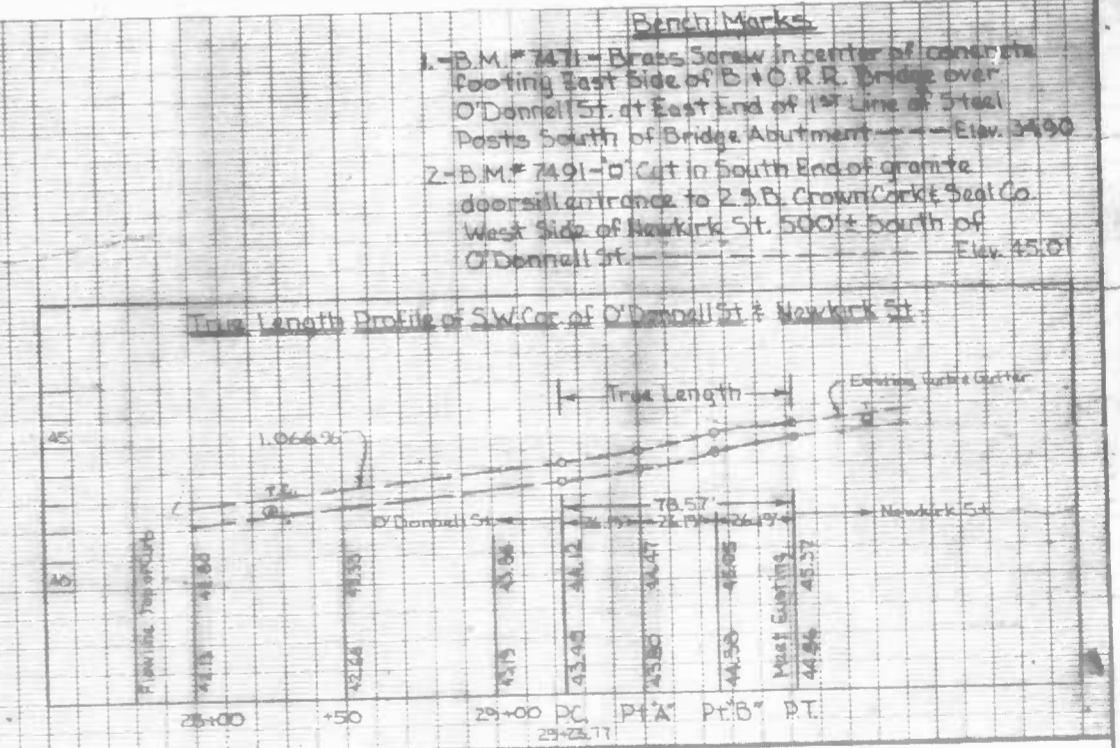 Bench Marks
1.-B.M.# 7471 - Brass Screw in center of concrete
footing East Side of B & O.R.R. Bridge over
O'Donnell St. at East End of 1ST Line of Steel
Posts South of Bridge Abutment - - - Elev. 34.90
2-B.M.# 7491-"D" Cut in South End of granite
doorsill entrance to 2 S.B. Crown Cork & Seal Co.
West Side of Newkirk St. 500'± South of
O'Donnell St. - - - - - - - - - Elev. 45.01
True Length Profile of S.W. Cor. of O'Donnell St & Newkirk St.
True Length
Existing Curb & Gutter
45
1.066%
T.C.
78.57'
O'Donnell St.
26.19' 26.19' 26.19'
Newkirk St.
Flowline Top of Curb
43.86
44.12
44.47
Meet Existing
45.37
42.13
42.66
43.19
43.45
43.80
44.38
44.86
28+00 +50 29+00 P.C. Pt."A" Pt."B" P.T.
29+23.77